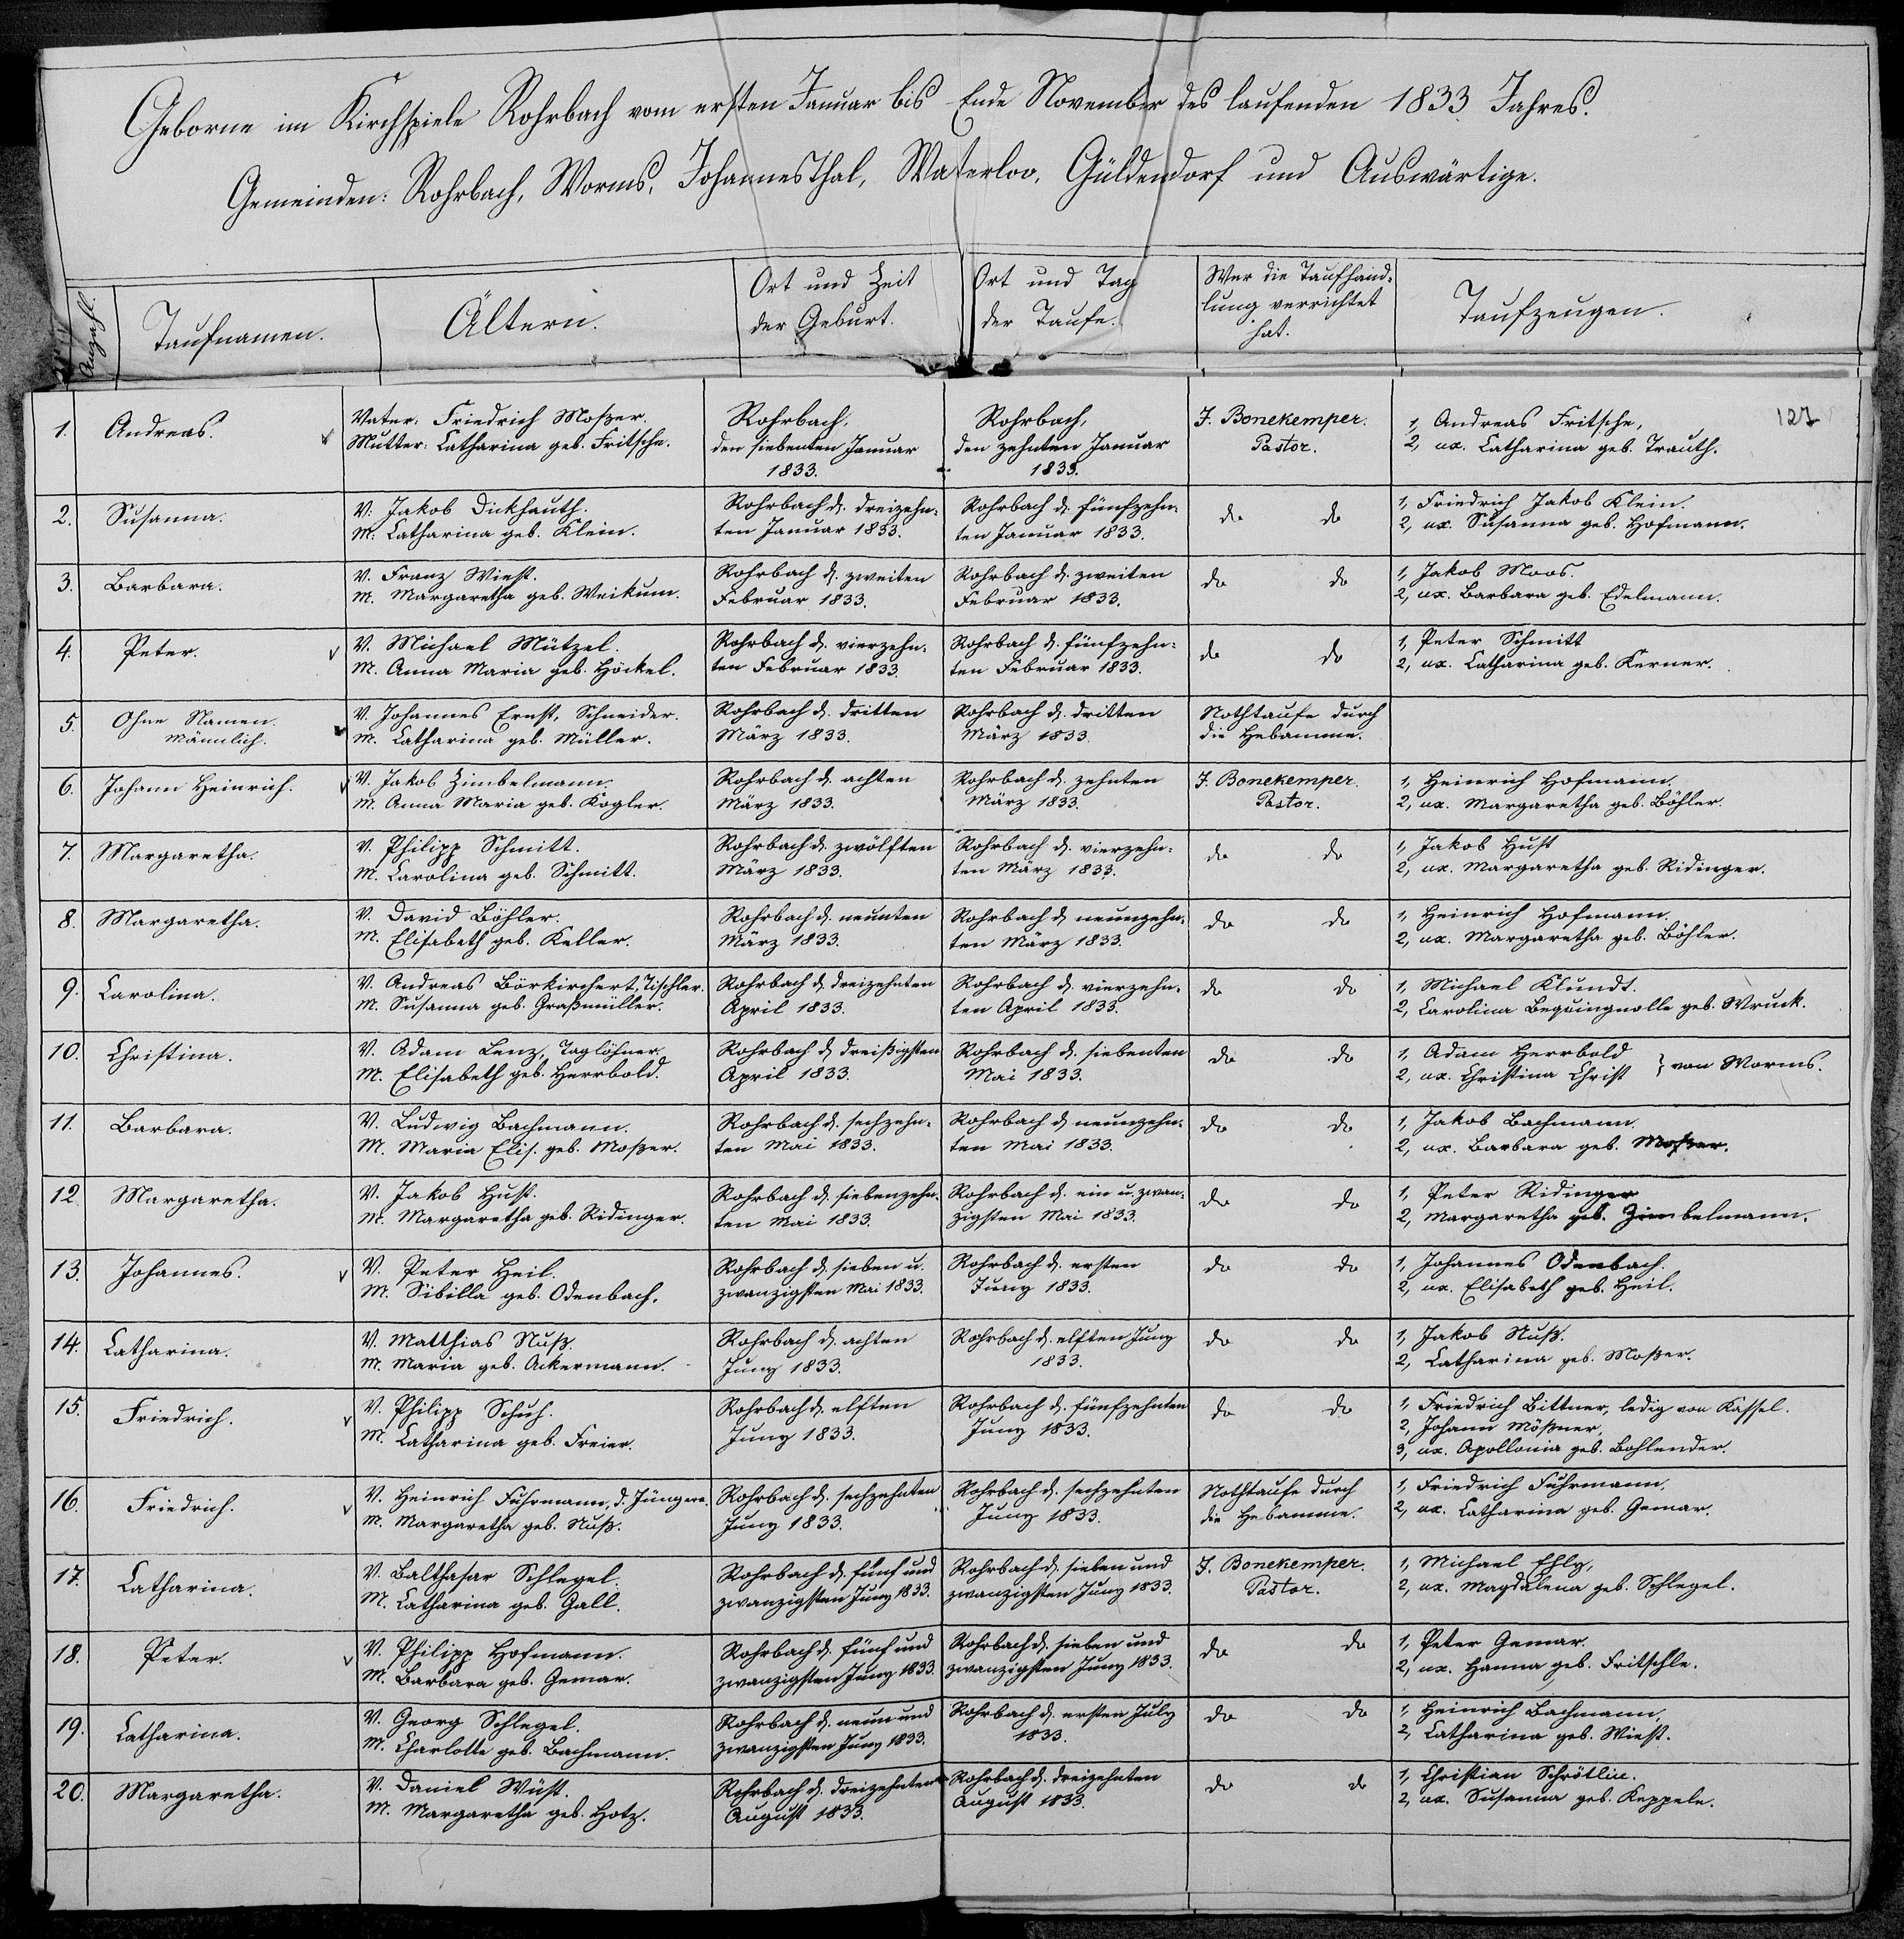 Geborne im Kirchspiele Rohrbach vom ersten Januar bis Ende November des laufenden 1833 Jahres.
Gemeinden: Rohrbach, Worms, JohannesThal, Waterloo, Güldendorf und Auswärtige.
Anzahl.
Taufnamen.
Ältern.
Ort und Zeit
der Geburt.
Ort und Tag
der Taufe.
Wer die Taufhand-
lung verrichtet
hat.
Taufzeugen.
127
1. Andreas.
Vater: Friedrich Moßer.
Mutter: Catharina geb. Fritsche.
Rohrbach,
den siebenten Januar
1833.
Rohrbach,
den zehnten Januar
1833.
J. Bonekemper.
Pastor.
1, Andreas Fritsche,
2, ux. Catharina geb. Trauth.
2. Susanna.
V. Jakob Dickhauth.
M. Catharina geb. Klein.
Rohrbach d. dreizehn-
ten Januar 1833.
Rohrbach d. fünfzehn-
ten Januar 1833.
do do
1, Friedrich Jakob Klein.
2, ux. Susanna geb. Hofmann.
3. Barbara.
V. Franz Wiest.
M. Margaretha geb. Weikum.
Rohrbach d. zweiten
Februar 1833.
Rohrbach d. zweiten
Februar 1833.
do do
1, Jakob Moos.
2, ux. Barbara geb. Edelmann.
4. Peter.
V. Michael Mützel.
M. Anna Maria geb. Höckel.
Rohrbach d. vierzehn-
ten Februar 1833.
Rohrbach d. fünfzehn-
ten Februar 1833.
do do
1, Peter Schmitt
2, ux. Catharina geb. Kerner.
5. Ohne Namen.
männlich.
V. Johannes Ernst, Schneider.
M. Catharina geb. Müller.
Rohrbach d. dritten
März 1833.
Rohrbach d. dritten
März 1833.
Nothtaufe durch
die Hebamme.
6. Johann Heinrich.
V. Jakob Zimbelmann.
M. Anna Maria geb. Kogler.
Rohrbach d. achten
März 1833.
Rohrbach d. zehnten
März 1833.
J. Bonekemper.
Pastor.
1, Heinrich Hofmann.
2, ux. Margaretha geb. Böhler.
7. Margaretha.
V. Philipp Schmitt.
M. Carolina geb. Schmitt.
Rohrbach d. zwölften
März 1833.
Rohrbach d. vierzehn-
ten März 1833.
do do
1, Jakob Hust
2, ux. Margaretha geb. Ridinger.
8. Margaretha.
V. David Böhler.
M. Elisabeth geb. Keller.
Rohrbach d. neunten
März 1833.
Rohrbach d. neunzehn-
ten März 1833.
do do
1, Heinrich Hofmann.
2, ux. Margaretha geb. Böhler.
9. Carolina.
V. Andreas Börkirchert, Tischler.
M. Susanna geb. Graßmüller.
Rohrbach d. dreizehnten
April 1833.
Rohrbach d. vierzehn-
ten April 1833.
do do
1, Michael Klundt.
2, Carolina Bequingnolle geb. Wruck.
10. Christina.
V. Adam Lenz, Taglöhner.
M. Elisabeth geb. Herrbold.
Rohrbach d. dreißigsten
April 1833.
Rohrbach d. siebenten
Mai 1833.
do do
1, Adam Herrbold
2, ux. Christina Christ } von Worms.
11. Barbara.
V. Ludwig Bachmann.
M. Maria Elis. geb. Moßer.
Rohrbach d. sechzehn-
ten Mai 1833.
Rohrbach d. neunzehn-
ten Mai 1833.
do do
1, Jakob Bachmann.
2, ux. Barbara geb. Moßer.
12. Margaretha.
V. Jakob Hust.
M. Margaretha geb. Ridinger.
Rohrbach d. siebenzehn-
ten Mai 1833.
Rohrbach d. ein u. zwan-
zigsten Mai 1833.
do do
1, Peter Ridinger
2, Margaretha geb. Zimbelmann.
13. Johannes.
V. Peter Heil.
M. Sibilla geb. Odenbach.
Rohrbach d. sieben u.
zwanzigsten Mai 1833.
Rohrbach d. ersten
Juny 1833.
do do
1, Johannes Odenbach.
2, ux. Elisabeth geb. Heil.
14. Catharina.
V. Matthias Nuß.
M. Maria geb. Ackermann.
Rohrbach d. achten
Juny 1833.
Rohrbach d. elften Juny
1833.
do do
1, Jakob Nuß.
2, Catharina geb. Moßer.
15. Friedrich.
V. Philipp Schuh.
M. Catharina geb. Freier.
Rohrbach d. elften
Juny 1833.
Rohrbach d. fünfzehnten
Juny 1833.
do do
1, Friedrich Bittner, ledig von Kassel.
2, Johann Mößner,
3, ux. Apollonia geb. Bohlender.
16. Friedrich.
V. Heinrich Fuhrmann, d. Jüngere.
M. Margaretha geb. Nuß.
Rohrbach d. sechzehnten
Juny 1833.
Rohrbach d. sechzehnten
Juny 1833.
Nothtaufe durch
die Hebamme.
1, Friedrich Fuhrmann,
2, ux. Catharina geb. Gemar.
17. Catharina.
V. Balthasar Schlegel.
M. Catharina geb. Gall.
Rohrbach d. fünf und
zwanzigsten Juny 1833.
Rohrbach d. sieben und
zwanzigsten Juny 1833.
J. Bonekemper.
Pastor.
1, Michael Ehly,
2, ux. Magdalena geb. Schlegel.
18. Peter.
V. Philipp Hofmann.
M. Barbara geb. Gemar.
Rohrbach d. fünf und
zwanzigsten Juny 1833.
Rohrbach d. sieben und
zwanzigsten Juny 1833.
do do
1, Peter Gemar.
2, ux. Hanna geb. Fritschle.
19. Catharina.
V. Georg Schlegel.
M. Charlotte geb. Bachmann.
Rohrbach d. neun und
zwanzigsten Juny 1833.
Rohrbach d. ersten July
1833.
do do
1, Heinrich Bachmann,
2, Catharina geb. Wiest.
20. Margaretha.
V. Daniel Wüst.
M. Margaretha geb. Hotz.
Rohrbach d. dreizehnten
August 1833.
Rohrbach d. dreizehnten
August 1833.
do do
1, Christian Schrötlin.
2, ux. Susanna geb. Keppele.